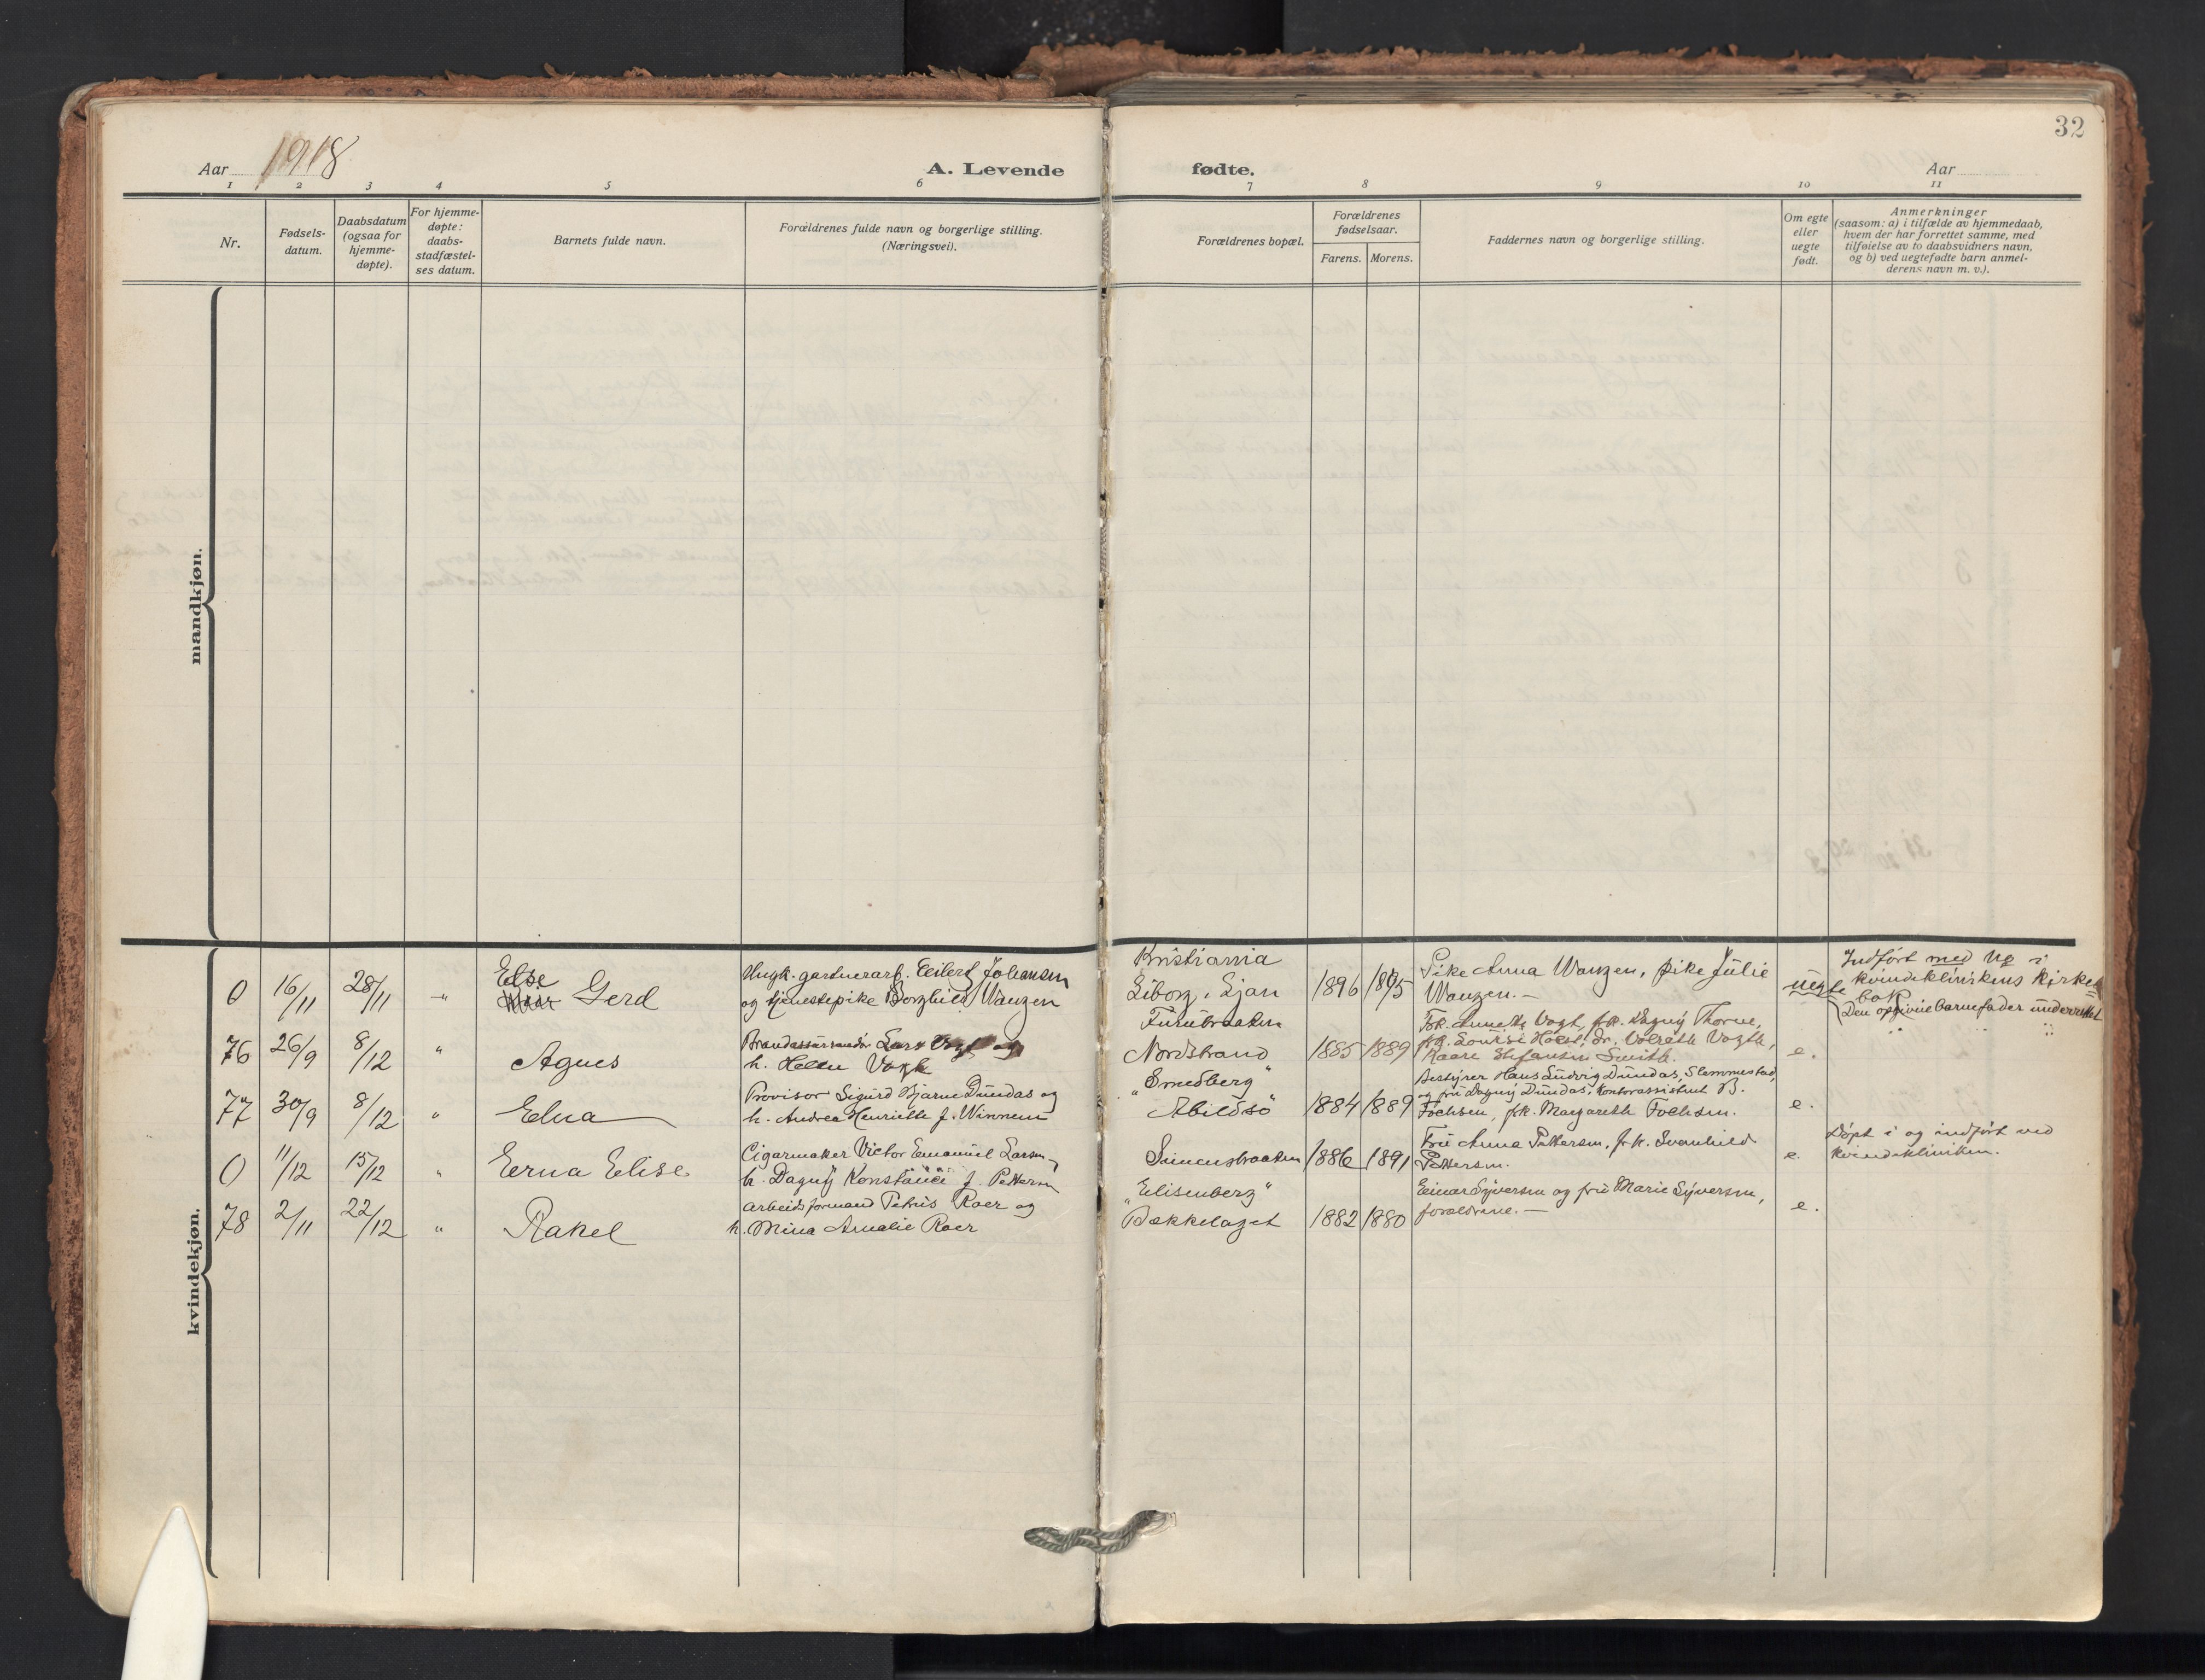 32
Aar 1918
A. Levende fødte.
Aar
1 2 3 4 5 6 7 8 9 10 11
Nr.
Fødsels-
datum.
Daabsdatum
(ogsaa for
hjemme-
døpte).
For hjemme-
døpte:
daabs-
stadfæstel-
ses datum.
Barnets fulde navn.
Forældrenes fulde navn og borgerlige stilling.
(Næringsvei).
Forældrenes bopæl.
Forældrenes
fødselsaar.
Farens. Morens.
Faddernes navn og borgerlige stilling.
Om egte
eller
uegte
født.
Anmerkninger
(saasom: a) i tilfælde av hjemmedaab,
hvem der har forrettet samme, med
tilføielse av to daabsvidners navn,
og b) ved uegtefødte barn anmel-
derens navn m. v.).
mandkjøn.
kvindekjøn.
0 16/11 28/11 -"-
Else
Gerd
Ungk. gartnerarb. Eilert Johansen
og tjenestepike Borghild Wangen
Kristiania
Liborg, Ljan
1896 1895
Pike Anna Wangen, pike Julie
Wangen.-
uegte
Indført med No i
kvindeklinikens kirke
bok
Den opgivne barnefader underrettet
76 26/9 8/12 "
Agnes
Lars Vogt og
h. Helen Vogt
Furubraaten
Nordstrand
1885 1889
Frk. Annette Vogt, frk. Dagny Thorne,
frk. Louise Dr. Volrath Vogth,
Kaare Stefansen Smith.
e.
77 30/9 8/12 "
Edna
Provisor Sigurd Bjarne Dundas og
h. Andrea Henriette f. Winnem
"Smedberg"
Abildsö
1884 1889
Bestyrer Hans Ludvig Dundas, Slemmestad,
og fru Dagny Dundas, kontorassistent B.
Fochsen, frk. Margareth Fochsen.
e.
0 11/12 15/12 "
Erna Elise
Cigarmaker Victor Emanuel Larsen
h. Dagny Konstance f. Pettersen
Simensbraaten
1886 1891
Fru Anna Pettersen, frk. Svanhild
Pettersen.
e.
Døpt i og indført ved
kvindekliniken.
78 2/11 22/12 "
Rakel
Arbeidsformand Petrus Roer og
h. Mina Amalie Roer
"Elisenberg"
Bækkelaget
1882 1880
Einar Syversen og fru Marie Syversen,
forældrene.-
e.